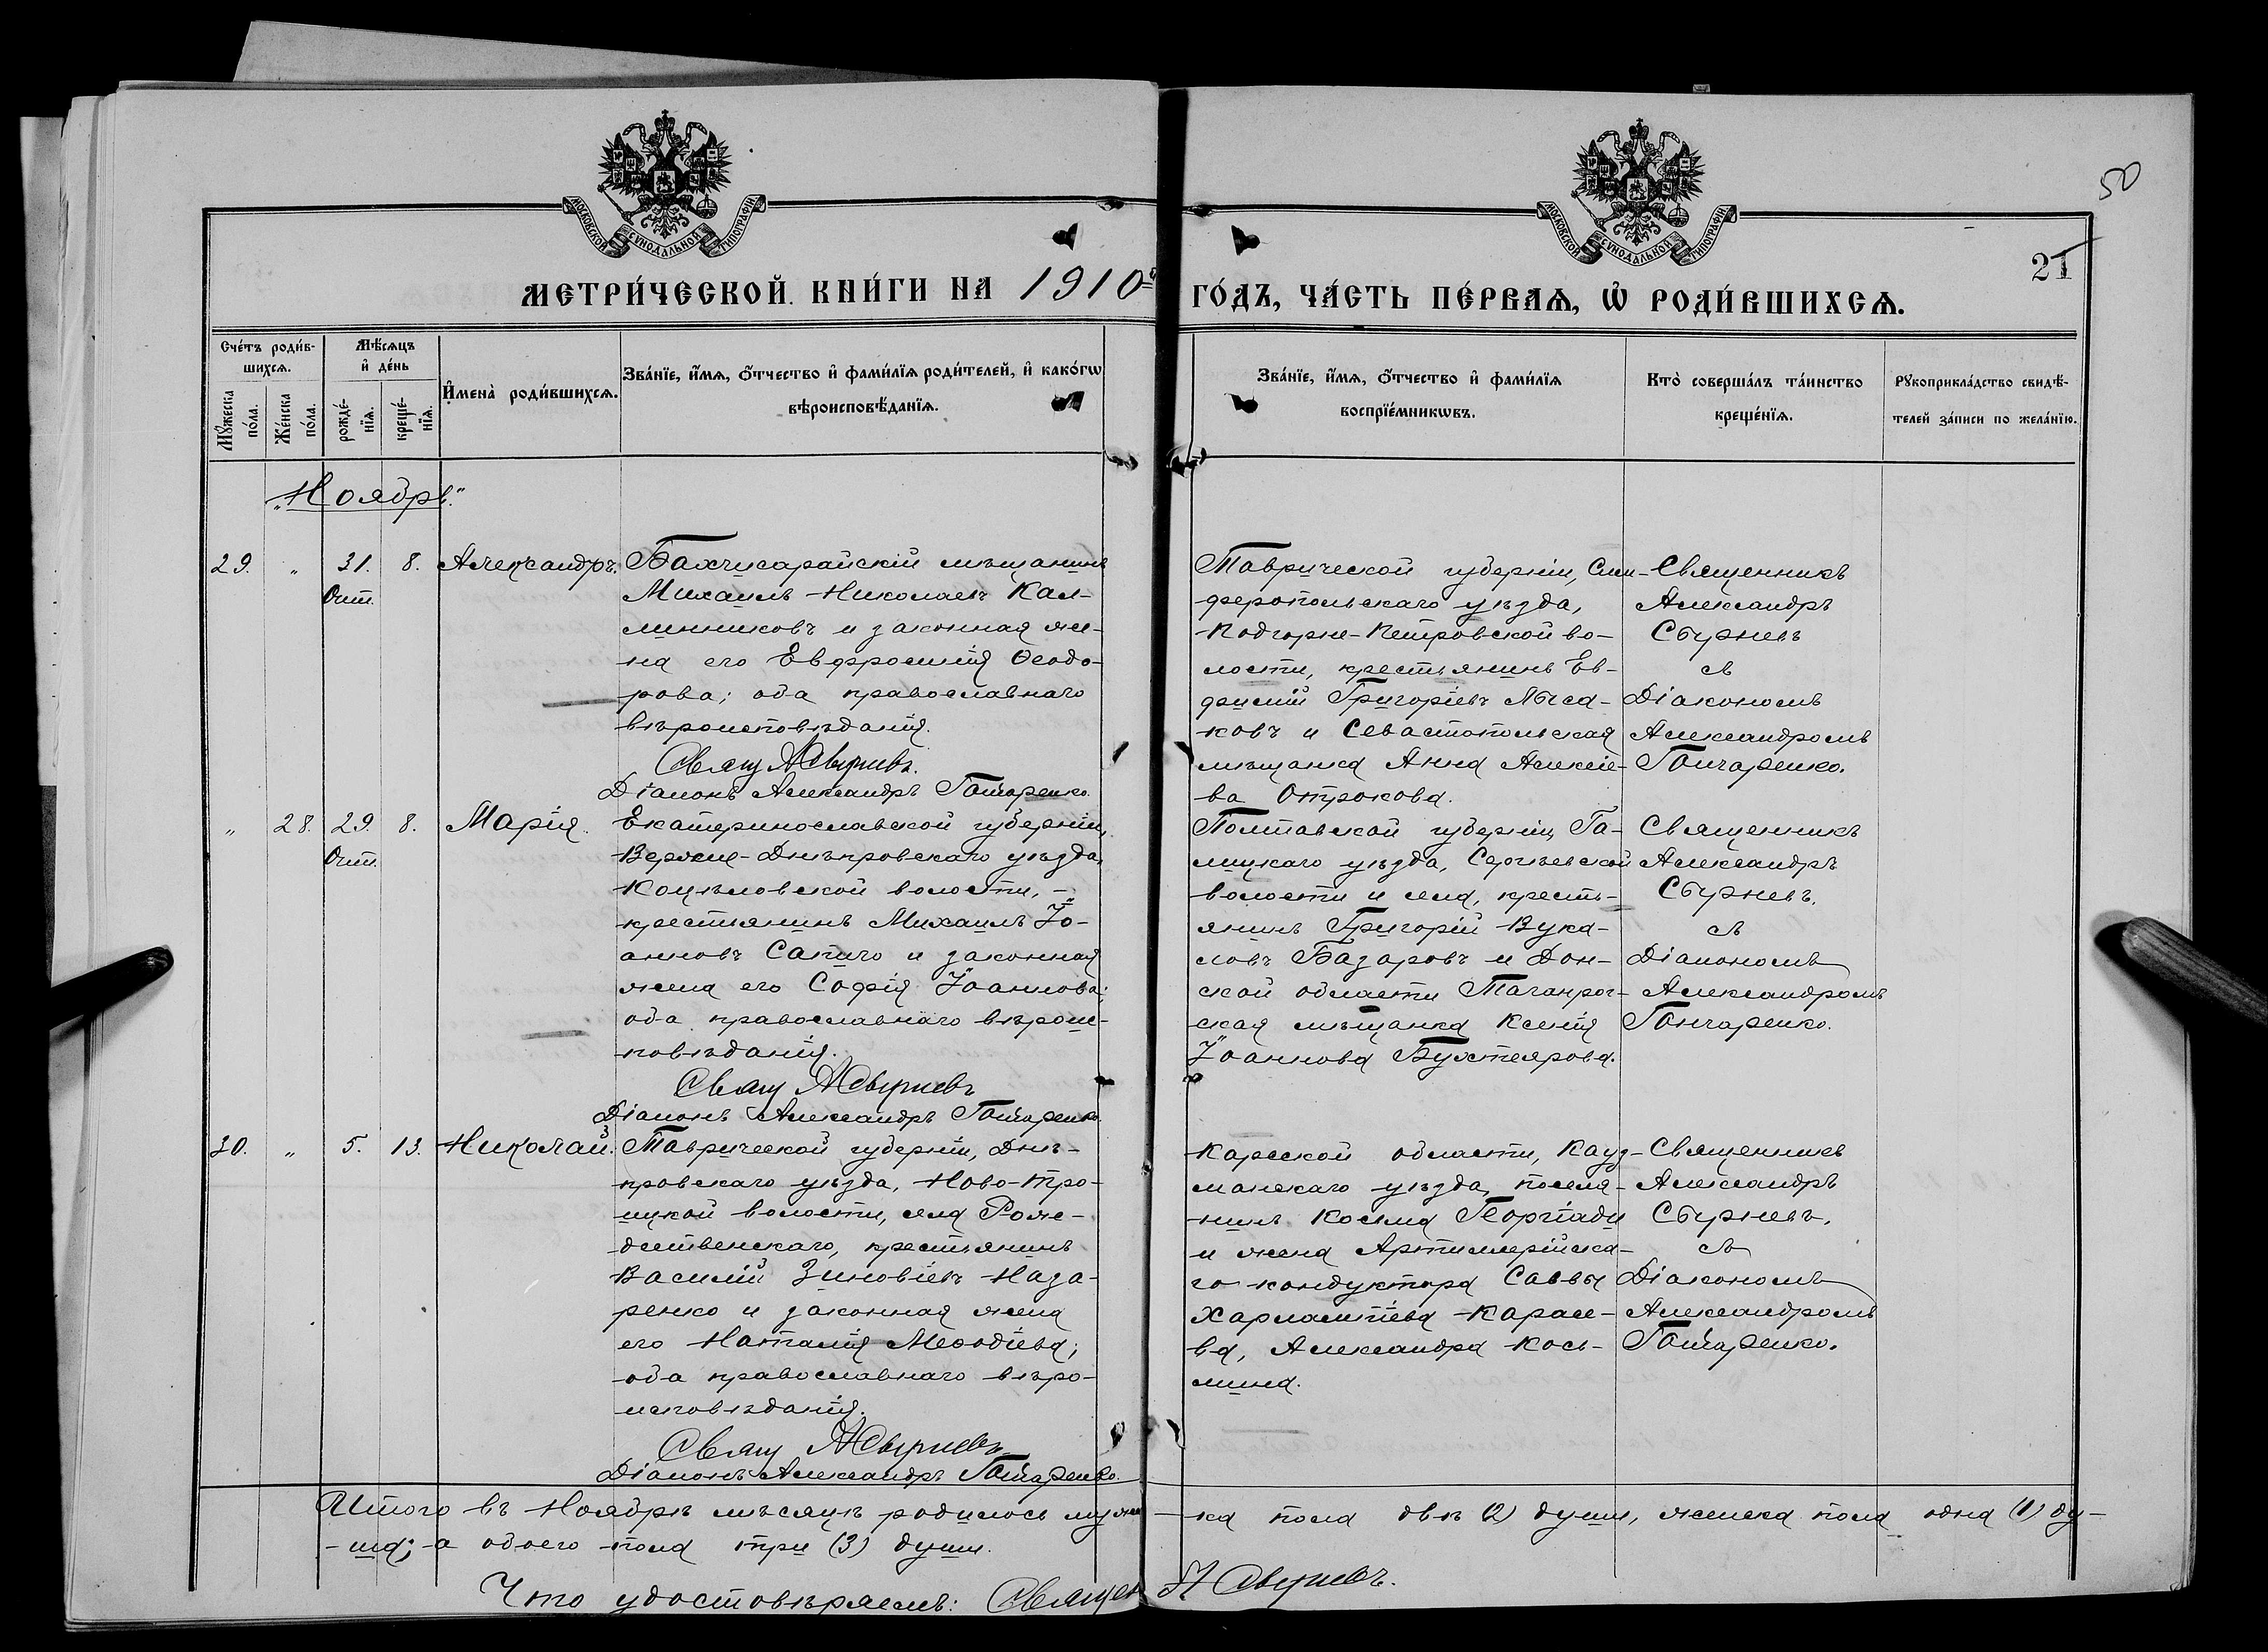 50
МОСКОВСКОЙ СѴНОДАЛЬНОЙ ТИПОГРАФІИ
МОСКОВСКОЙ СѴНОДАЛЬНОЙ ТИПОГРАФІИ
21
МЕТРИ́ЧЕСКОЙ КНИ́ГИ НА 1910й ГО́ДЪ, ЧА́СТЬ ПЕ́РВАѦ, Ѡ РОДИ́ВШИХСѦ.
Сче́тъ роди́в-
шихсѧ.
Мꙋжеска по́ла.
Же́нска по́ла.
Мѣ́сѧцъ
и де́нь
рожде́-
нїѧ.
креще́-
нїѧ.
Имена̀ роди́вшихсѧ.
Зва́нїе, и́мѧ, о́тчество и фами́лїѧ роди́телей, и како́гѡ
вѣроисповѣ́данїѧ.
Зва́нїе, и́мѧ, о́тчество и фами́лїѧ
воспрїе́мникѡвъ.
Кто̀ соверша́лъ та́инство
креще́нїѧ.
Рꙋкоприкла́дство свидѣ́-
телей за́писи по жела́нїю.
„Ноябрь"
29. „ 31. 8. Александръ.
Окт.
Бахчисарайскій мѣщанинъ
Михаилъ Николаевъ Кал-
линниковъ и законная же-
на его Евфросинія Ѳеодо-
рова; оба православнаго
вѣроисповѣданія.
Свящ АСбурневъ.
Діаконъ Александръ Гончаренко.
Таврической губерніи, Сим-
феропольскаго уѣзда,
Подгорне-Петровской во-
лости, крестьянинъ Ев-
фимій Григоріевъ Лыса-
ковъ и Севастопольская
мѣщанка Анна Алексіе-
ва Отрокова.
Священникъ
Александръ
Сбурневъ
съ
Діакономъ
Александромъ
Гончаренко.
„ 28. 29. 8. Марія.
Окт.
Екатеринославской губерніи,
Верхне-Днѣпровскаго уѣзда,
Коцѣловской волости, -
крестьянинъ Михаилъ Іо-
анновъ Сапиго и законная
жена его Софія Іоаннова;
оба православнаго вѣроис-
повѣданія.
Свящ АСбурневъ
Діаконъ Александръ Гончаренко.
Полтавской губерніи, Га-
дяцкаго уѣзда, Сергѣевской
волости и села, кресть-
янинъ Григорій Вука-
ловъ Базаровъ и Дон-
ской области Таганрог-
ская мѣщанка Ксенія
Іоаннова Бухтеярова.
Священникъ
Александръ
Сбурневъ.
съ
Діакономъ
Александромъ
Гончаренко.
30. „ 5. 13. Николай.
Таврической губерніи, Днѣ-
провскаго уѣзда, Ново-Тро-
ицкой волости, села Рож-
дественскаго, крестьянинъ
Василій Зиновіевъ Наза-
ренко и законная жена
его Наталія Меѳодіева;
оба православнаго вѣро-
исповѣданія.
Свящ АСбурневъ
Діаконъ Александръ Гончаренко.
Карсской области, Кагыз-
манскаго уѣзда, поселя-
нинъ Косьма Георгіади
и жена Артиллерійска-
го кондуктора Саввы
Харлампіева Карае-
ва, Александра Кось-
мина.
Священникъ
Александръ
Сбурневъ.
съ
Діакономъ
Александромъ
Гончаренко.
Итого въ Ноябрѣ мѣсяцѣ родилось муже- ска пола двѣ (2) души, женска пола одна (1) ду-
- ша; а обоего пола три (3) души.
Что удостовѣряемъ: Священ А Сбурневъ.